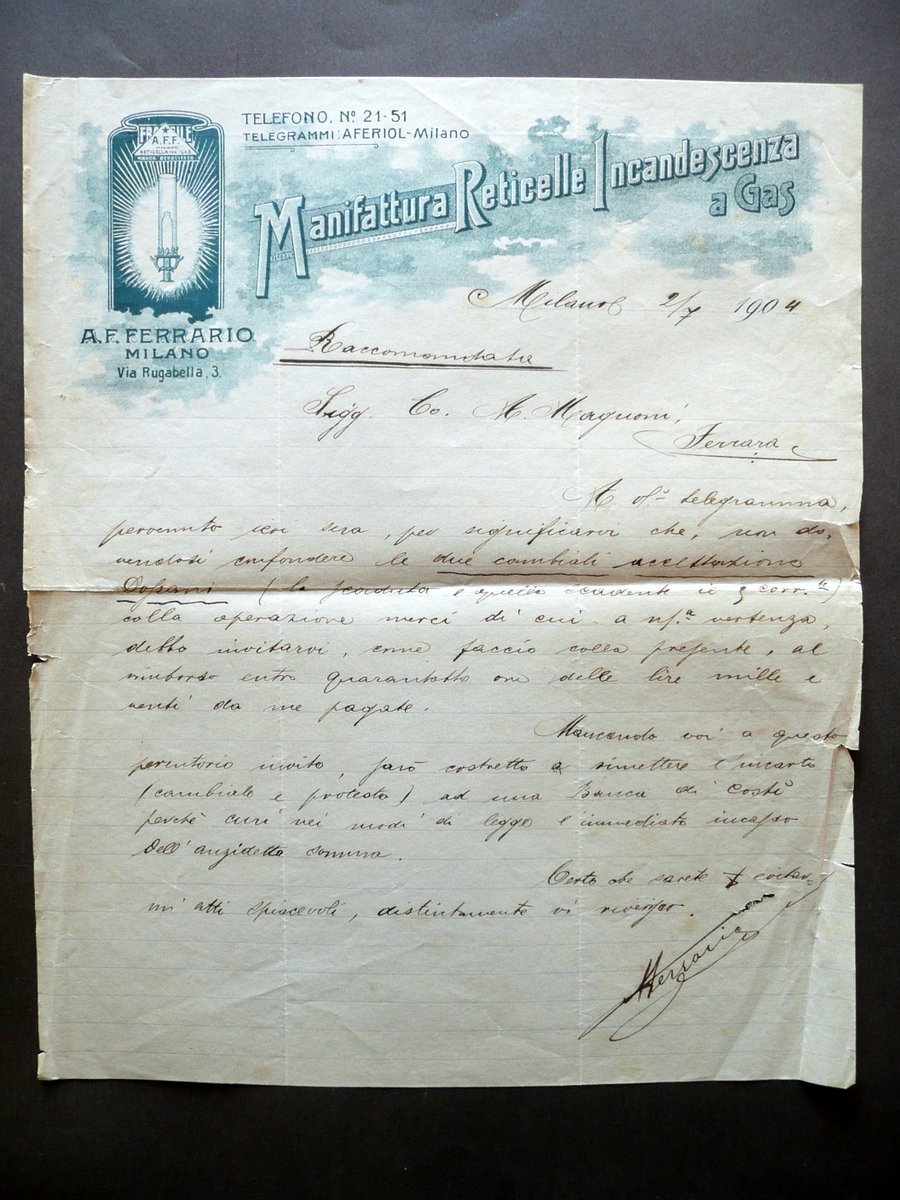 TELEFONO. Nº 21-51
TELEGRAMMI: AFERIOL-Milano
FRAGILE
A.F.F.
MILANO
RETICELLA PER GAS
MARCA DEPOSITATA
Manifattura Reticelle Incandescenza
a Gas
A. F. FERRARIO
MILANO
Via Rugabella, 3.
Milano 2/7 1904
Raccomandata
Sigg. Co. M. Magnoni,
Ferrara
A telegramma,
pervenuto ieri sera, per significarvi che, non do-
vendosi confondere le due cambiali accettazione
(la scaduta e quella scadente il corr.te)
colla operazione merci di cui a n/.a vertenza,
debbo invitarvi, come faccio colla presente, al
rimborso entro quarantotto ore delle lire mille e
venti da me pagate.
Mancando voi a questo
perentorio invito, sarò costretto a rimettere l'incarto
(cambiale e protesto) ad una Banca di costì
perchè curi nei modi di legge l'immediato incasso
dell'anzidetta somma.
Certo che sarete evitar-
mi atti spiacevoli, distintamente vi riverisco.
AFerrario